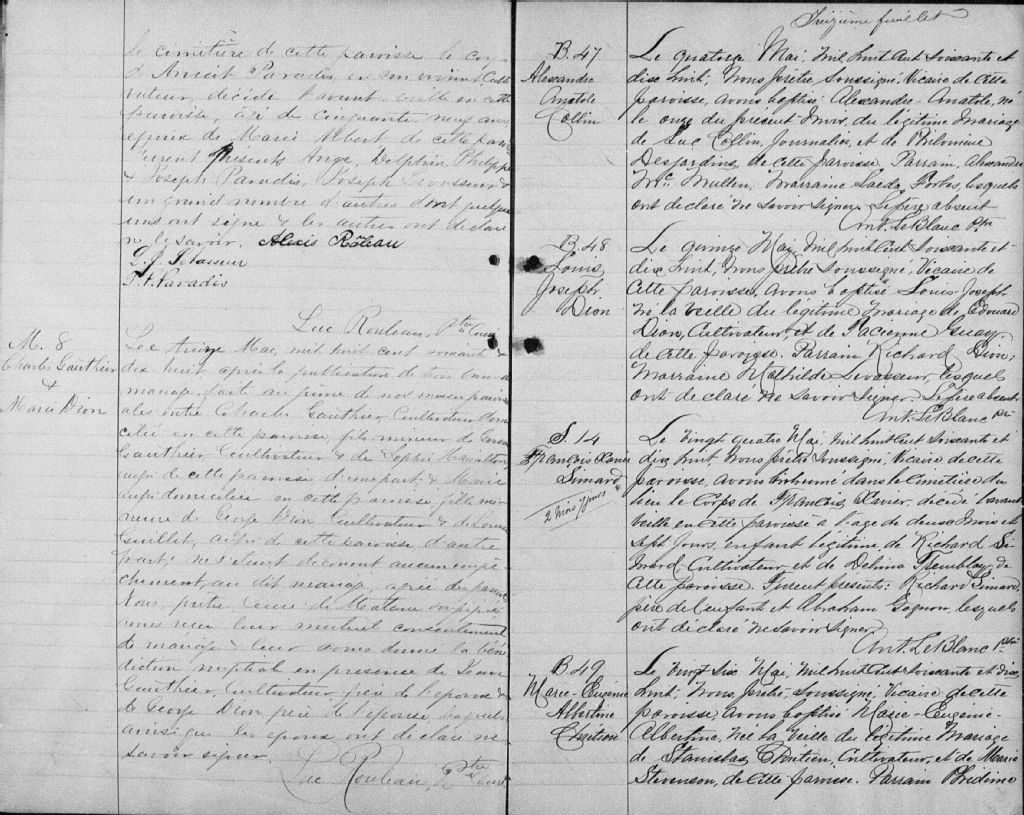 le cimetière de cette paroisse le corps
d'Anicet Paradis, en son vivant Culti-
vateur, décédé l'avant veille en cette
paroisse, agé de cinquante neuf ans
époux de Marie Albert de cette paroisse
Furent Présents Ange, Delphin, Philippe
& Joseph Paradis, Joseph Levasseur &
un grand nombre d'autres dont quelques
uns ont signé & les autres ont déclaré
ne le savoir. Alexis Rouleau
G. J. Levasseur
F. X. Paradis
Luc Rouleau, Ptre Curé
M. 8
Charles Gauthier
&
Marie Dion
Le treize Mai, mil huit cent soixante &
dix huit, après la publication de trois bans de
mariage, faite au prône de nos messes parois-
siales entre Charles Gauthier, Cultivateur domi-
cilié en cette paroisse, fils mineur de
Gauthier, Cultivateur & de Sophie Hamilton
aussi de cette paroisse d'une part, & Marie
aussi domiciliée en cette paroisse, fille mi-
neure de George Dion, Cultivateur & de Louise
Guillet, aussi de cette paroisse d'autre
part; ne s'étant découvert aucun empê-
chement au dit mariage
Nous, prêtre, Curé de Matane soussigné
avons reçu leur mutuel consentement
de mariage & leur avons donné la béné-
diction nuptiale en présence de Jean
Gauthier, Cultivateur, père de l'époux &
de George Dion père de l'épouse lesquels
ainsi que les époux ont déclaré ne
savoir signer.
Luc Rouleau, Ptre Curé
Treizième feuillet
B. 47
Alexandre
Anatole
Collin
Le quatorze Mai, mil huit cent soixante et
dix huit, Nous prêtre soussigné, Vicaire de cette
paroisse, avons baptisé Alexandre Anatole, né
le onze du présent mois, du légitime mariage
de Luc Collin, Journalier, et de Philomène
Desjardins, de cette paroisse. Parrain, Alexandre
Mc. Mullen, Marraine Forbes, lesquels
ont déclaré ne savoir signer. Le père absent
Ant. LeBlanc Ptre
B. 48
Louis
Joseph
Dion
Le quinze Mai, mil huit cent soixante et
dix huit, Nous prêtre soussigné, Vicaire de
cette paroisse, avons baptisé Louis Joseph
né la veille du légitime mariage de Edouard
Dion, Cultivateur, et de Guay,
de cette paroisse. Parrain Richard Dion;
Marraine Mathilde Levasseur, lesquels
ont déclaré ne savoir signer. Le père absent
Ant. LeBlanc Ptre
S. 14
François Xavier
Simard
2 mois 7 jours
Le vingt quatre Mai, mil huit cent soixante et
dix huit, Nous prêtre soussigné, Vicaire de cette
paroisse, avons inhumé dans le Cimetière du
lieu le Corps de François Xavier, décédé l'avant
veille en cette paroisse à l'age de deux mois et
sept jours, enfant légitime de Richard Si-
mard Cultivateur, et de Delima Tremblay, de
cette paroisse. Furent présents: Richard Simard,
père de l'enfant et Abraham Gagnon, lesquels
ont déclaré ne savoir signer
Ant. LeBlanc Ptre
B. 49
Marie-Eugénie
Albertine
Chrétien
Le vingt six Mai, mil huit cent soixante et dix
huit, Nous, prêtre soussigné, Vicaire de cette
paroisse, avons baptisé Marie-Eugénie-
Albertine, née la veille du légitime mariage
de Stanislas Chrétien, Cultivateur, et de Marie
Stevenson, de cette paroisse. Parrain Phidime